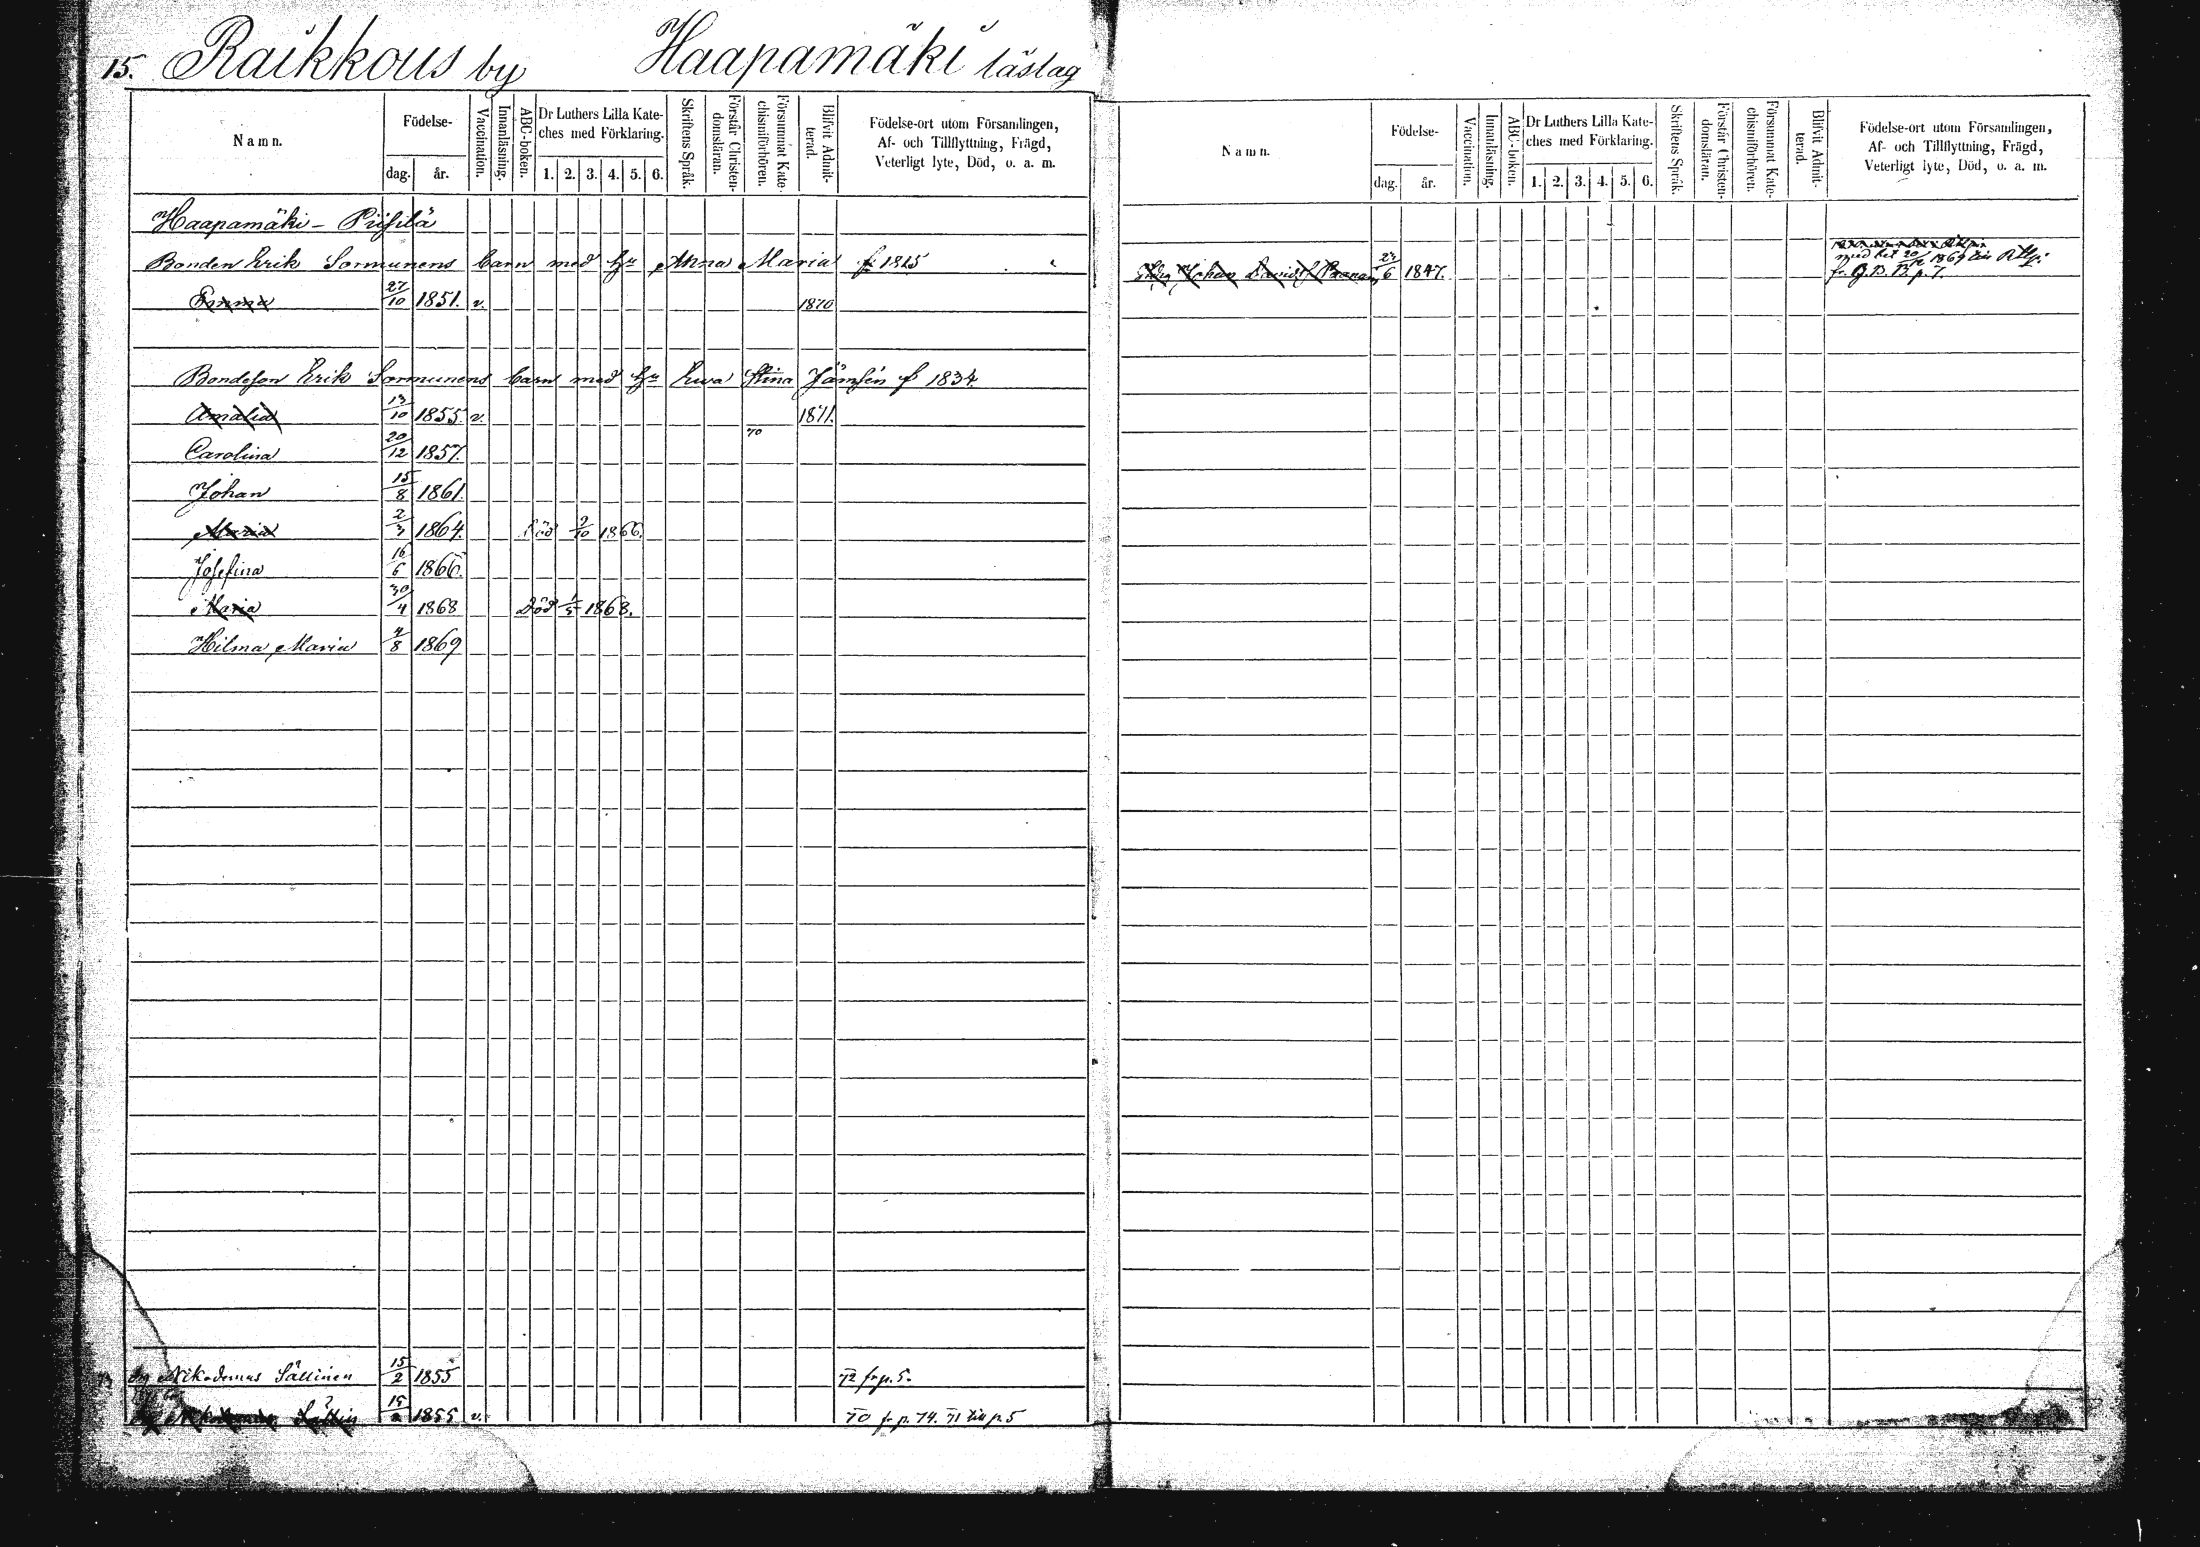 15. Raikkous by Haapamäki läslag
Namn.
Födelse-
dag. år.
Vaccination.
Innanläsning.
ABC-boken.
Dr Luthers Lilla Kate-
ches med Förklaring.
1. 2. 3. 4. 5. 6.
Skriftens Språk.
Förstår Christen-
domsläran.
Försummat Kate-
chismiförhören.
Blifvit Admit-
terad.
Födelse-ort utom Församlingen,
Af- och Tillflyttning, Frägd,
Veterligt lyte, Död, o. a. m.
Haapamäki - Piisilä
Bonden Erik Sormunens barn med hu Anna Maria f. 1815
Emma 27/10 1851. v. 1870
Bondeson Erik Sormunens barn med hu Ewa Stina Jämsén f 1834
Amalia 13/10 1855. v. 1871.
70
Carolina 20/12 1857.
Johan 15/8 1861.
Maria 2/3 1864. Död 9/10 1866.
Josefina 16/6 1866.
Maria 30/4 1868 Död 1/5 1868.
Hilma Maria 4/8 1869
73 Nikodemus Sällinen 15/2 1855 72 fr p. 5.
15/2 1855 v. 70 fr p. 74. 71 till p. 5
Namn.
Födelse-
dag. år.
Vaccination.
Innanläsning.
ABC-boken.
Dr Luthers Lilla Kate-
ches med Förklaring.
1. 2. 3. 4. 5. 6.
Skriftens Språk.
Förstår Christen-
domsläran.
Försummat Kate-
chismiförhören.
Blifvit Admit-
terad.
Födelse-ort utom Församlingen,
Af- och Tillflyttning, Frägd,
Veterligt lyte, Död, o. a. m.
Johan Davidsf 23/6 1847.
med bet 20/12 1869
fr. p. 7.